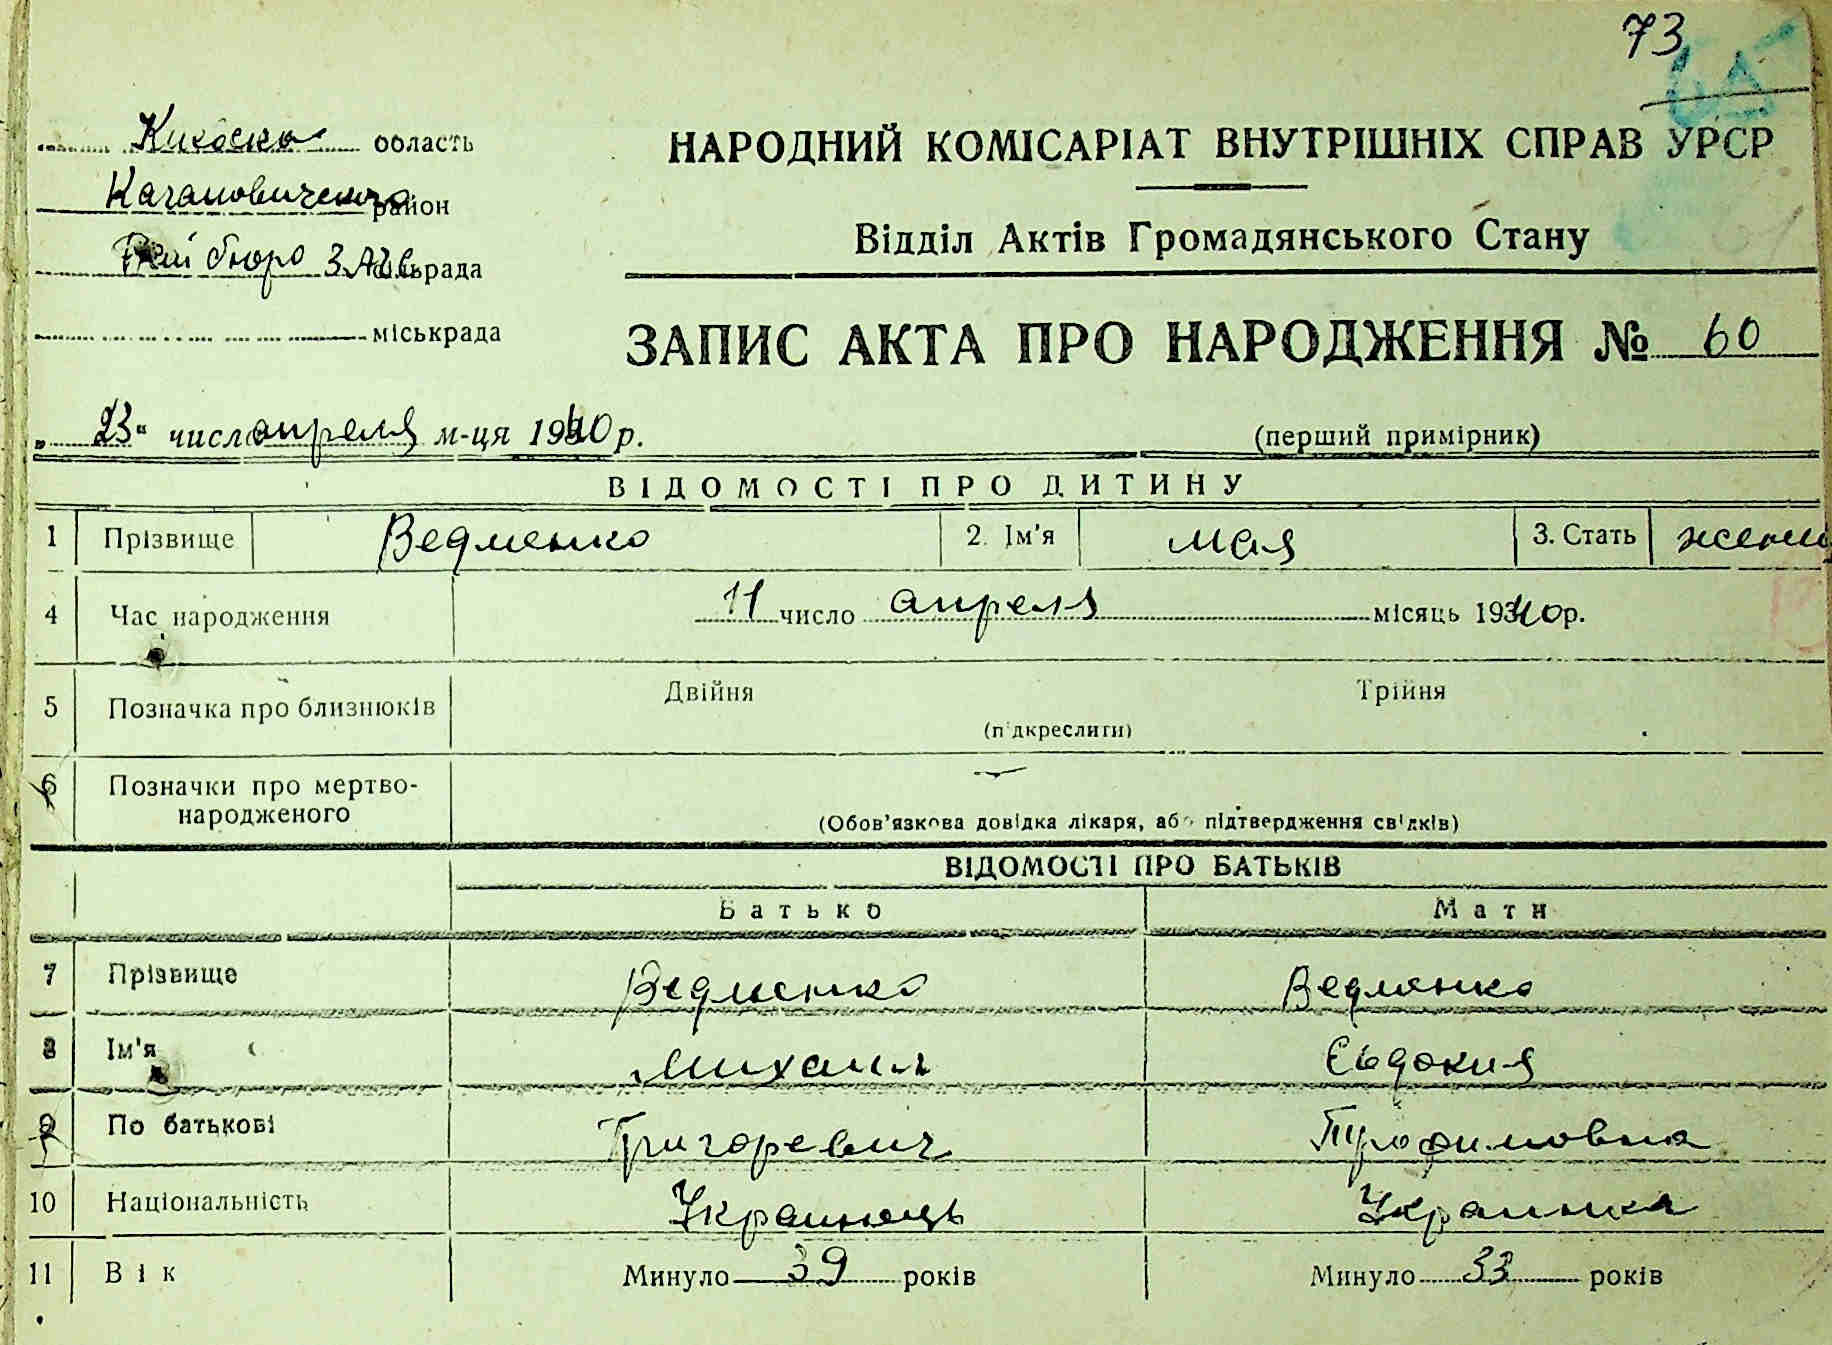 73
Киевска область
Кагановическ район
бюро ЗАГС сільрада
міськрада
НАРОДНИЙ КОМІСАРІАТ ВНУТРІШНІХ СПРАВ УРСР
Відділ Актів Громадянського Стану
ЗАПИС АКТА ПРО НАРОДЖЕННЯ № 60
„ 23 “ число апреля м-ця 1940 р.
(перший примірник)
ВІДОМОСТІ ПРО ДИТИНУ
1 Прізвище Ведменко 2. Ім'я Мая 3. Стать женш
4 Час народження 11 число апреля місяць 1940 р.
5 Позначка про близнюків Двійня Трійня
(підкреслити)
6 Позначки про мертво-
народженого
(Обов'язкова довідка лікаря, або підтвердження свідків)
ВІДОМОСТІ ПРО БАТЬКІВ
Батько Мати
7 Прізвище Ведменко Ведменко
8 Ім'я Михаил Євдокия
9 По батькові Григоревич Трофимовна
10 Національність Украинець Украинка
11 Вік Минуло 39 років Минуло 33 років